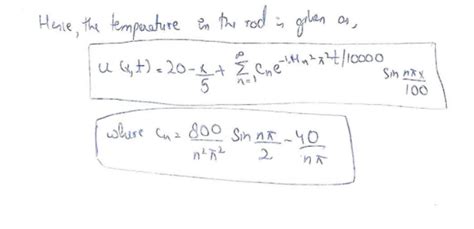 Hence, the temperature in the rod is given as,
u(x,t) = 20 - x/5 + ∑_{n=1}^{∞} C_n e^{-1.14 n² π² t/10000} sin nπx/100
where C_n = 800/n²π² sin nπ/2 - 40/nπ